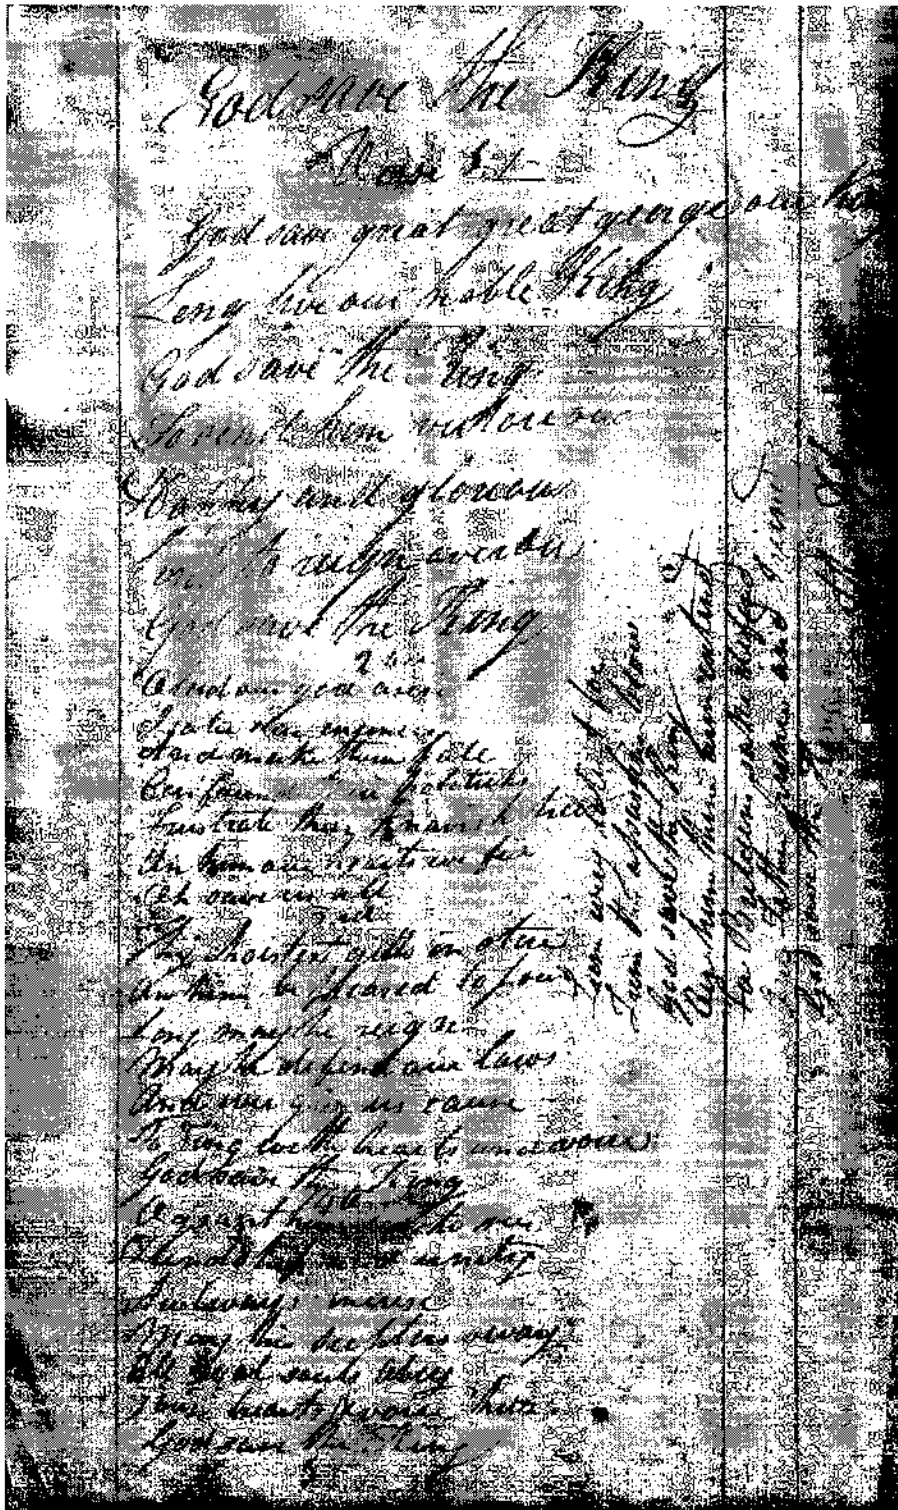 God save the King
Verse 1st
God save great great george our King
Long live our noble King
God save the King
So send him victourous
Happy and glorious
Long to reign over us
God save the King
2
O lord our god arise
Scater his enemies
And make them fale
Confound their politicks
Frustrate thay knavish
On him our hearts we fix
Oh save us all
3
Thy choisest gifts in store
On him be pleased to pour
Long may he reign
May he defend our laws
And ever give us cause
To sing with hearts and voice
God save the King
4
O grant
and unity
Increase
May his scepters sway
All loyal souls obey
Join hearts voice
God save the King
From every
From the assassins blow
God save the King
O'er him thine arm extend
For Britains sake defend
Our father prince and friend
God save the King